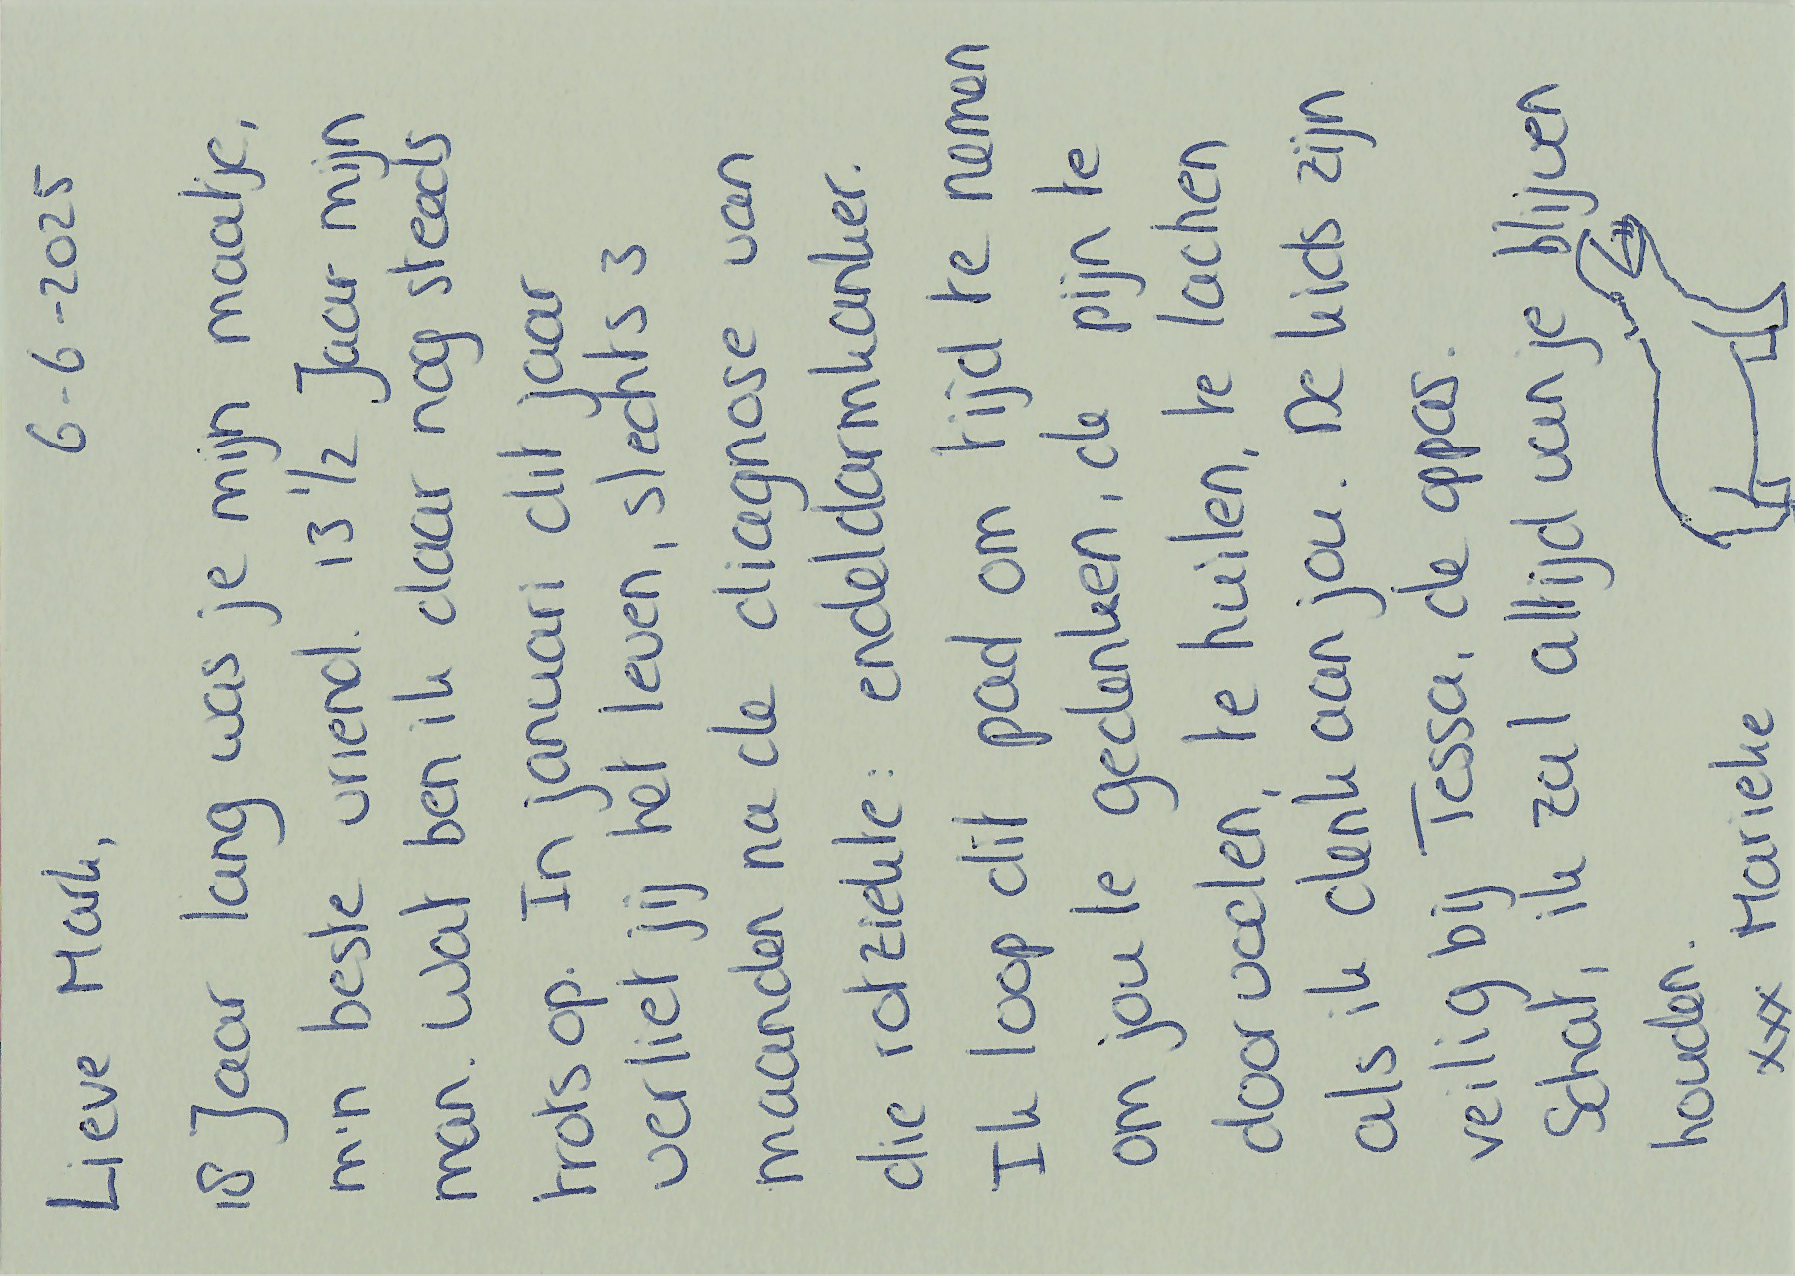 6-6-2025
Lieve Mark,
18 Jaar lang was je mijn maatje,
m'n beste vriend. 13 1/2 Jaar mijn
man. wat ben ik daar nog steeds
trots op. In januari dit jaar
verliet jij het leven, slechts 3
maanden na de diagnose van
die rotziekte: endeldarmkanker.
Ik loop dit pad om tijd te nemen
om jou te gedenken, de pijn te
doorvoelen, te huilen, te lachen
als ik denk aan jou. De kids zijn
veilig bij Tessa, de oppas.
Schat, ik zal altijd van je blijven
houden.
xxx Marieke